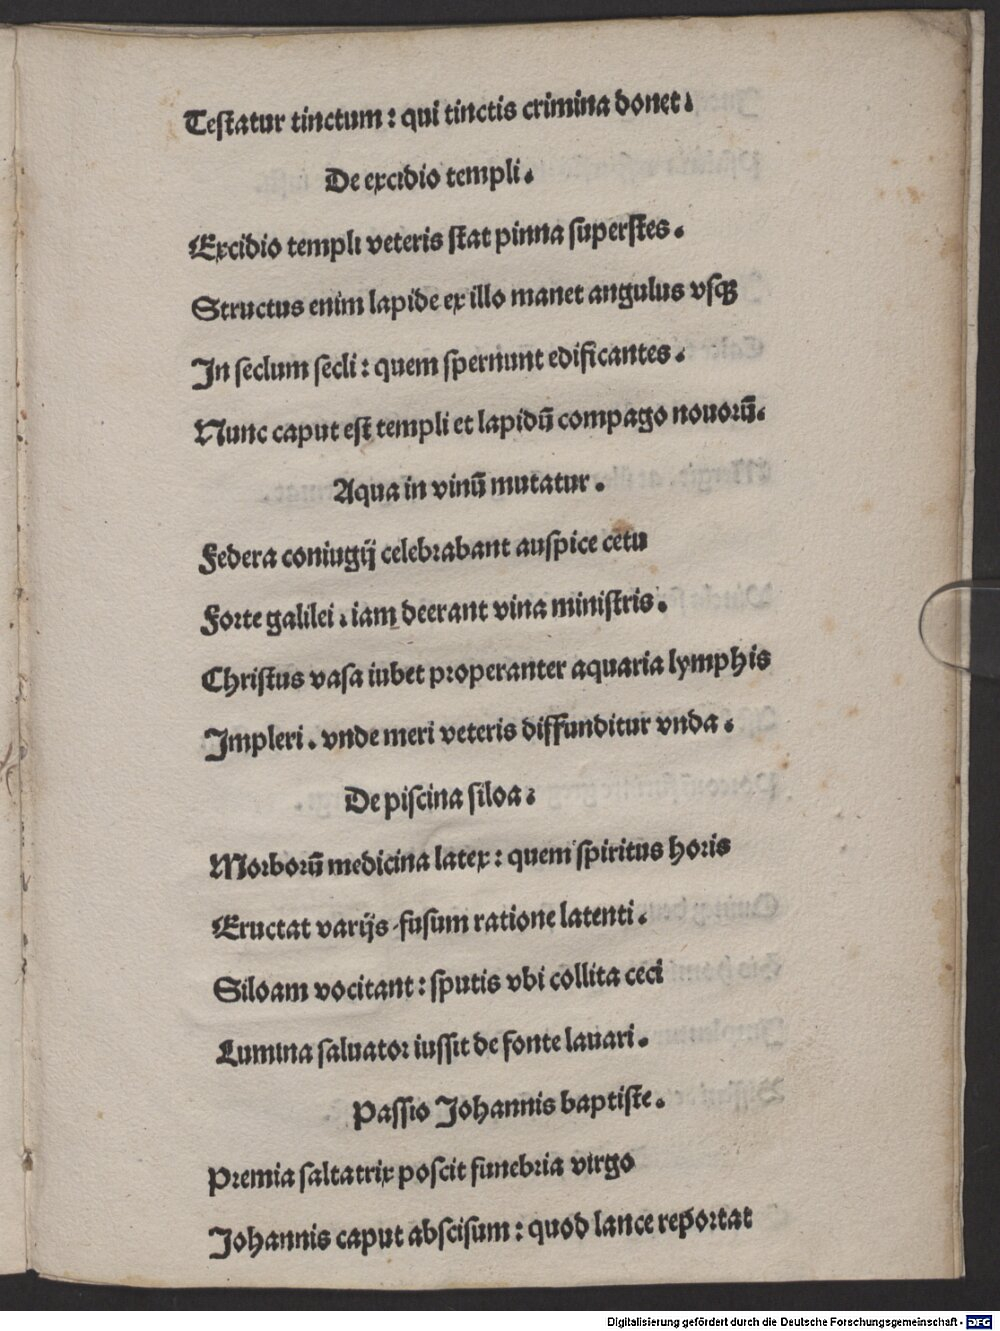 Testatur tinctum : qui tinctis crimina donet.
De excidio templi.
Excidio templi veteris stat pinna superstes.
Structus enim lapide ex illo manet angulus vsqꝫ
In seclum secli : quem spernunt edificantes.
Nunc caput est templi et lapidū compago nouorū.
Aqua in vinū mutatur.
Federa coniugij celebrabant auspice cetu
Forte galilei. iam deerant vina ministris.
Christus vasa iubet properanter aquaria lymphis
Impleri. vnde meri veteris diffunditur vnda.
De piscina siloa.
Morborū medicina latex : quem spiritus horis
Eructat varijs fusum ratione latenti.
Siloam vocitant : sputis vbi collita ceci
Lumina saluator iussit de fonte lauari.
Passio Johannis baptiste.
Premia saltatrix poscit funebria virgo
Johannis caput abscisum : quod lance reportat
Digitalisierung gefördert durch die Deutsche Forschungsgemeinschaft - DFG